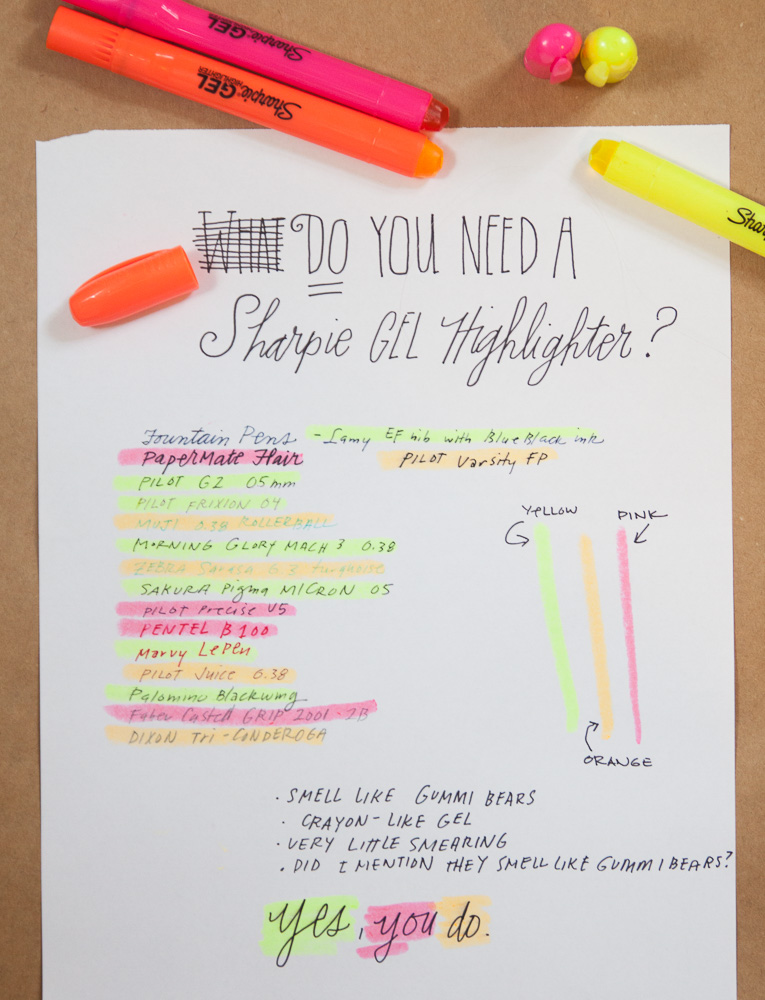 Sharpie GEL
Sharpie GEL
HIGHLIGHTER
Shar
WHAT DO YOU NEED A
Sharpie GEL Highlighter?
Fountain Pens - Lamy EF nib with BlueBlack ink
PaperMate Flair PILOT Varsity FP
PILOT G2 05mm
PILOT FRIXION 04
MUJI 0.38 ROLLERBALL
MORNING GLORY MACH 3 0.38
ZEBRA Sarasa 0.3 turquoise
SAKURA Pigma MICRON 05
PILOT Precise V5
PENTEL B100
Marvy LePen
PILOT Juice 0.38
Palomino Blackwing
Faber Castell GRIP 2001-2B
DIXON Tri-CONDEROGA
YELLOW PINK
ORANGE
· SMELL LIKE GUMMI BEARS
· CRAYON-LIKE GEL
· VERY LITTLE SMEARING
· DID I MENTION THEY SMELL LIKE GUMMI BEARS?
yes, you do.